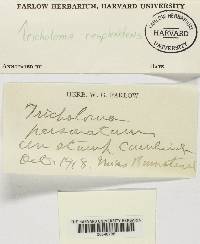 FARLOW HERBARIUM, HARVARD UNIVERSITY
Tricholoma resplendens
FARLOW HERBARIUM
HARVARD
UNIVERSITY
ANNOTAVIT
DATE
HERB. W. G. FARLOW
Tricholoma
personatum
on stump Cambridge
Oct. 1918. Miss
THE HARVARD UNIVERSITY HERBARIA